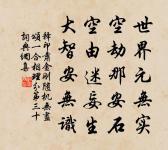 世界元無實
空劫那安石
空由迷妄生
大智安無識
釋印肅金剛隨機無盡
頌一合相理分第三十
詞典網集